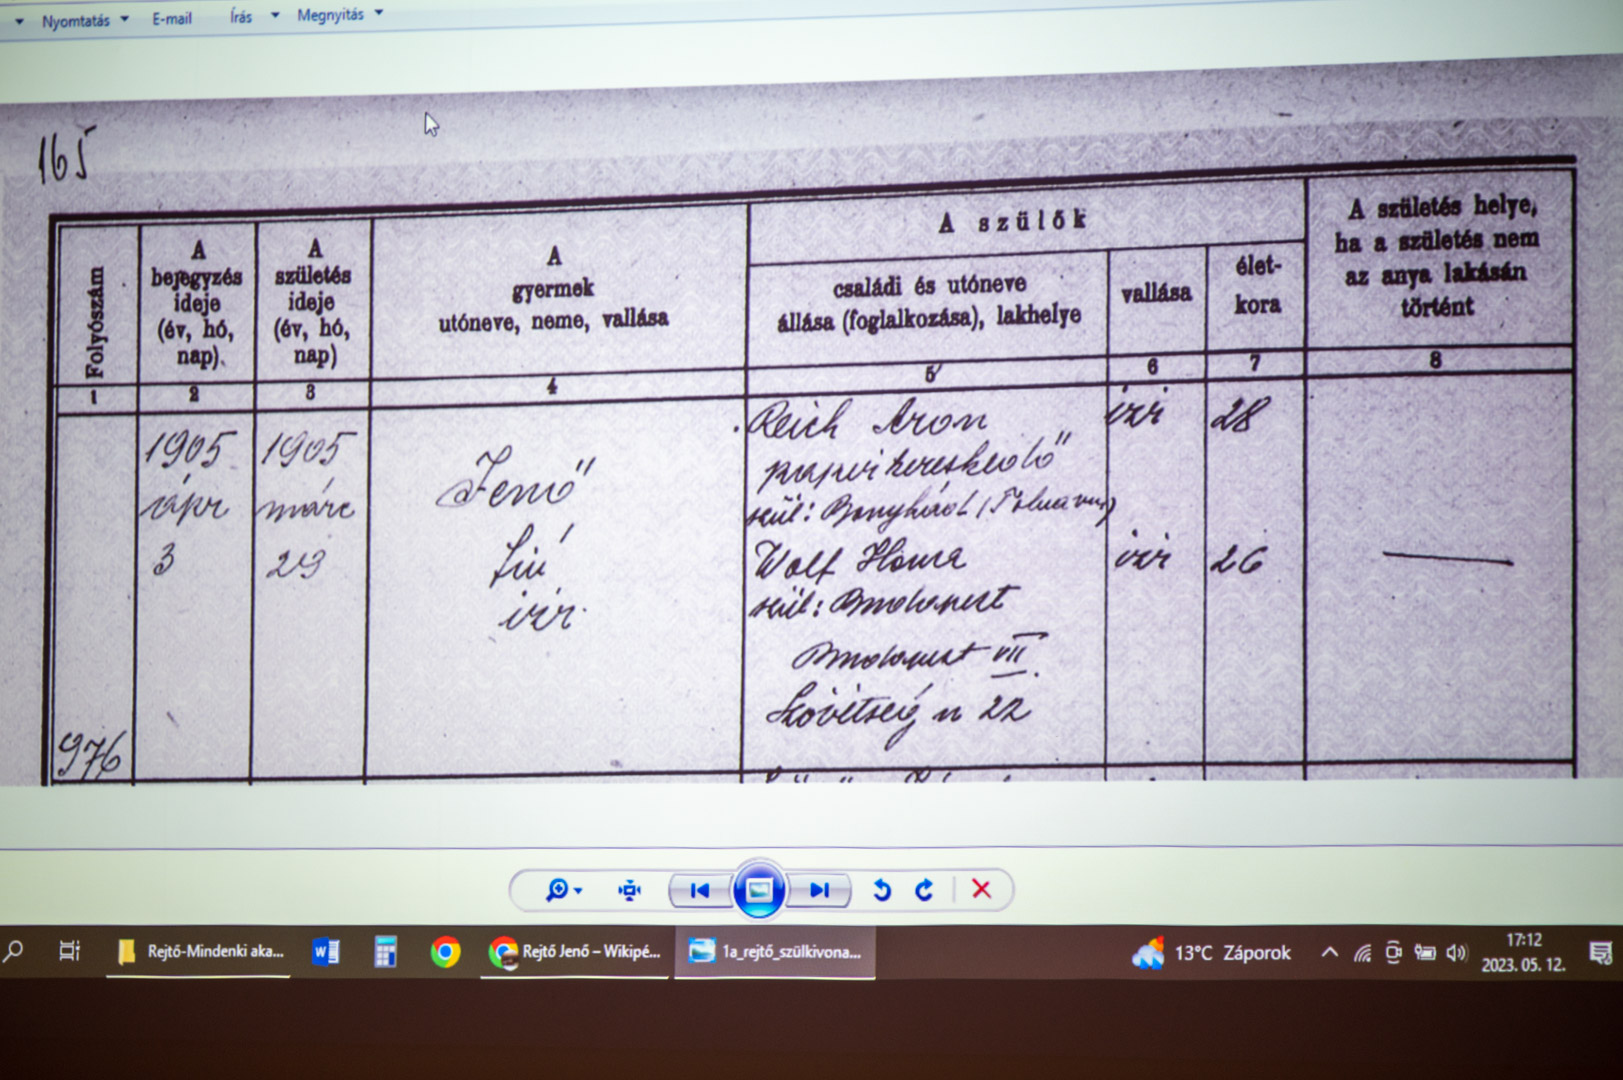 Nyomtatás E-mail Írás Megnyitás
165
Folyószám
A bejegyzés ideje (év, hó, nap).
A születés ideje (év, hó, nap)
A gyermek utóneve, neme, vallása
A szülők
családi és utóneve
állása (foglalkozása), lakhelye
vallása
élet-
kora
A születés helye,
ha a születés nem
az anya lakásán
történt
1 2 3 4 5 6 7 8
1905 ápr 3
1905 márc 29
Jenő
fiú
izr.
Reich Áron izr 28
papírkereskedő
szül: Bonyhád (Tolna vm)
Wolf Ilona izr 26
szül: Budapest
Budapest VII.
Szövetség u 22
976
Rejtő-Mindenki aka...
Rejtő Jenő – Wikipé...
1a_rejtő_szülkivona...
13°C Záporok
17:12
2023. 05. 12.